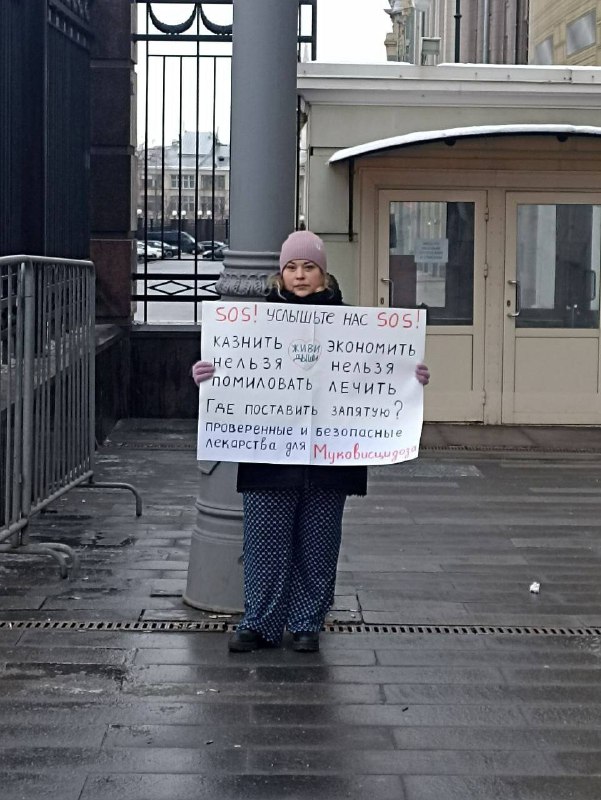 SOS! УСЛЫШЬТЕ НАС SOS!
КАЗНИТЬ ЖИВИ ЭКОНОМИТЬ
НЕЛЬЗЯ ДЫШИ НЕЛЬЗЯ
ПОМИЛОВАТЬ ЛЕЧИТЬ
ГДЕ ПОСТАВИТЬ ЗАПЯТУЮ?
ПРОВЕРЕННЫЕ И БЕЗОПАСНЫЕ
ЛЕКАРСТВА ДЛЯ Муковисцидоза